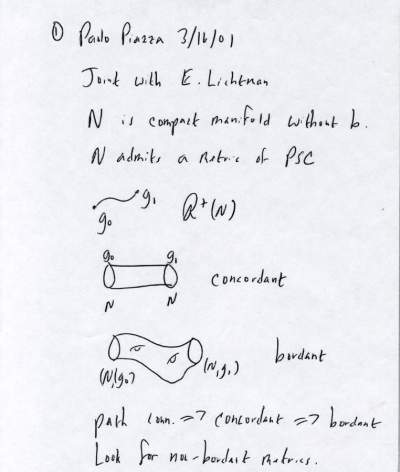 ① Paolo Piazza 3/16/01
Joint with E. Lichtman
N is compact manifold without b.
N admits a metric of PSC
g₀ g₁ R⁺(N)
g₀ g₁
concordant
N N
bordant
(N,g₀) (N,g₁)
path conn. => concordant => bordant
Look for non-bordant metrics.